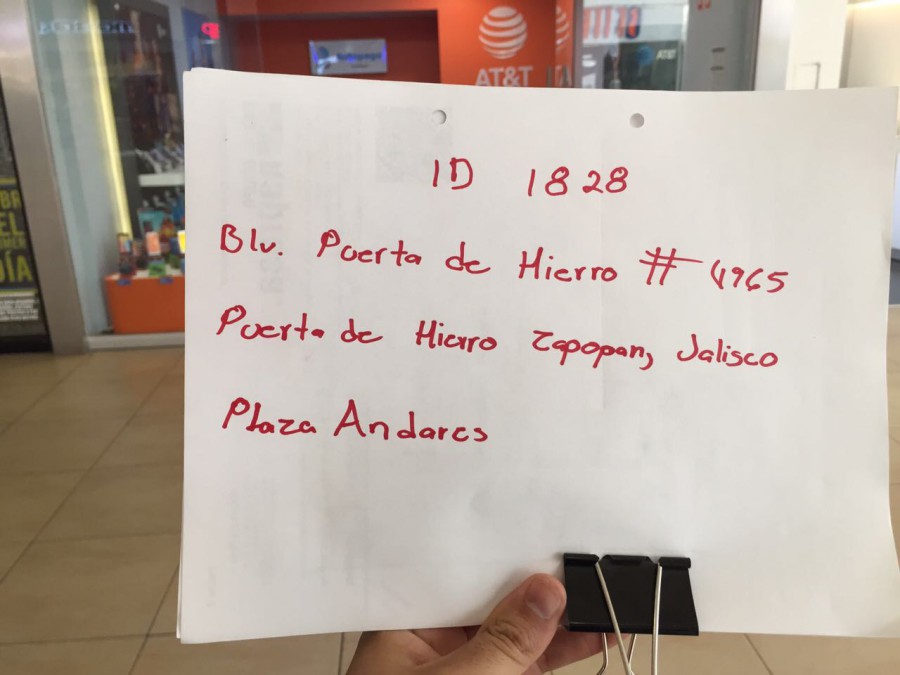 AT&T
AT&T
ID 1828
Blv. Puerta de Hierro # 4965
Puerta de Hierro Zapopan, Jalisco
Plaza Andares
EL
DÍA